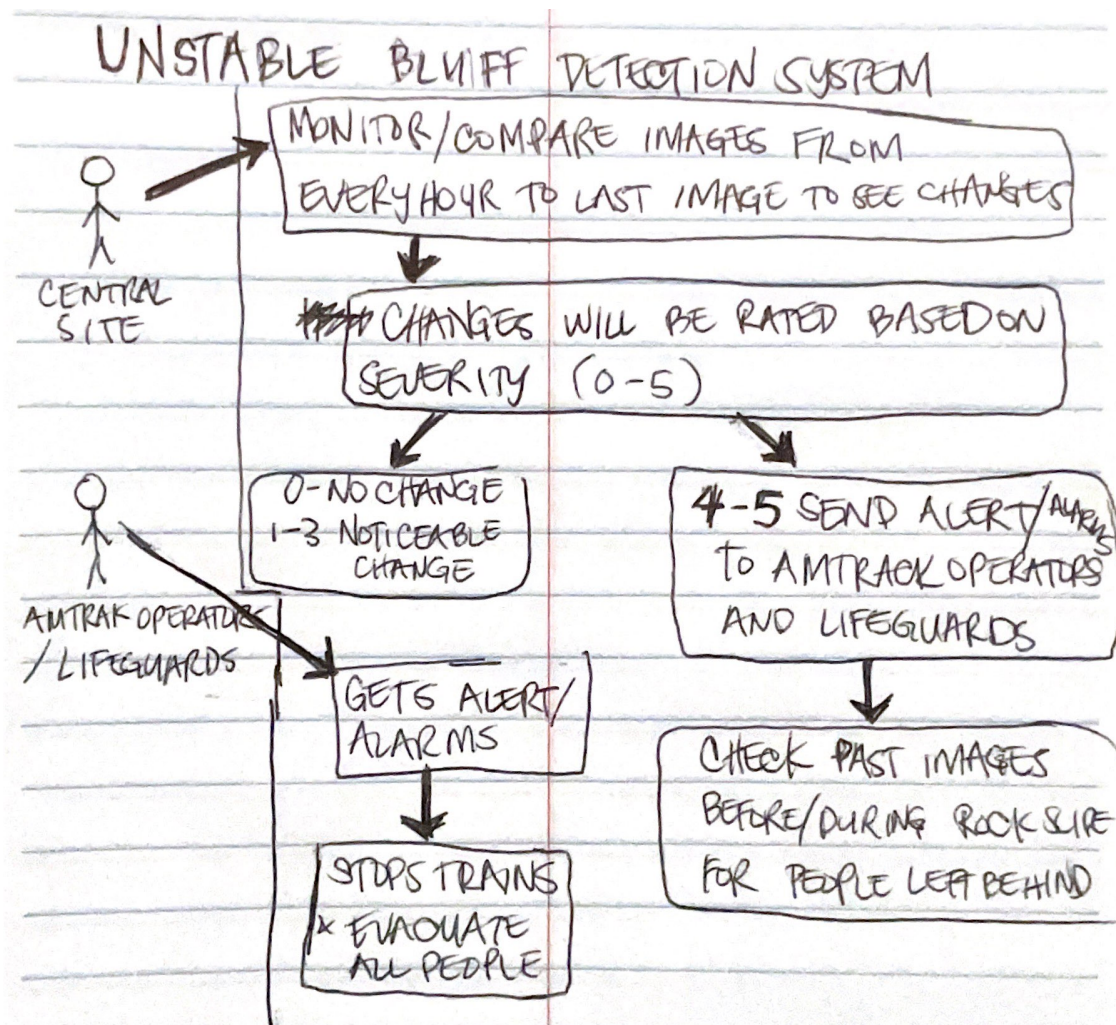 UNSTABLE BLUFF DETECTION SYSTEM
MONITOR/COMPARE IMAGES FROM
EVERY HOUR TO LAST IMAGE TO SEE CHANGES
CENTRAL
SITE
CHANGES WILL BE RATED BASED ON
SEVERITY (0-5)
0-NO CHANGE
1-3 NOTICEABLE
CHANGE
4-5 SEND ALERT/ALARMS
TO AMTRACK OPERATORS
AND LIFEGUARDS
AMTRAK OPERATORS
/LIFEGUARDS
GETS ALERT/
ALARMS
CHECK PAST IMAGES
BEFORE/DURING ROCK SLIDE
FOR PEOPLE LEFT BEHIND
STOPS TRAINS
* EVACUATE
ALL PEOPLE